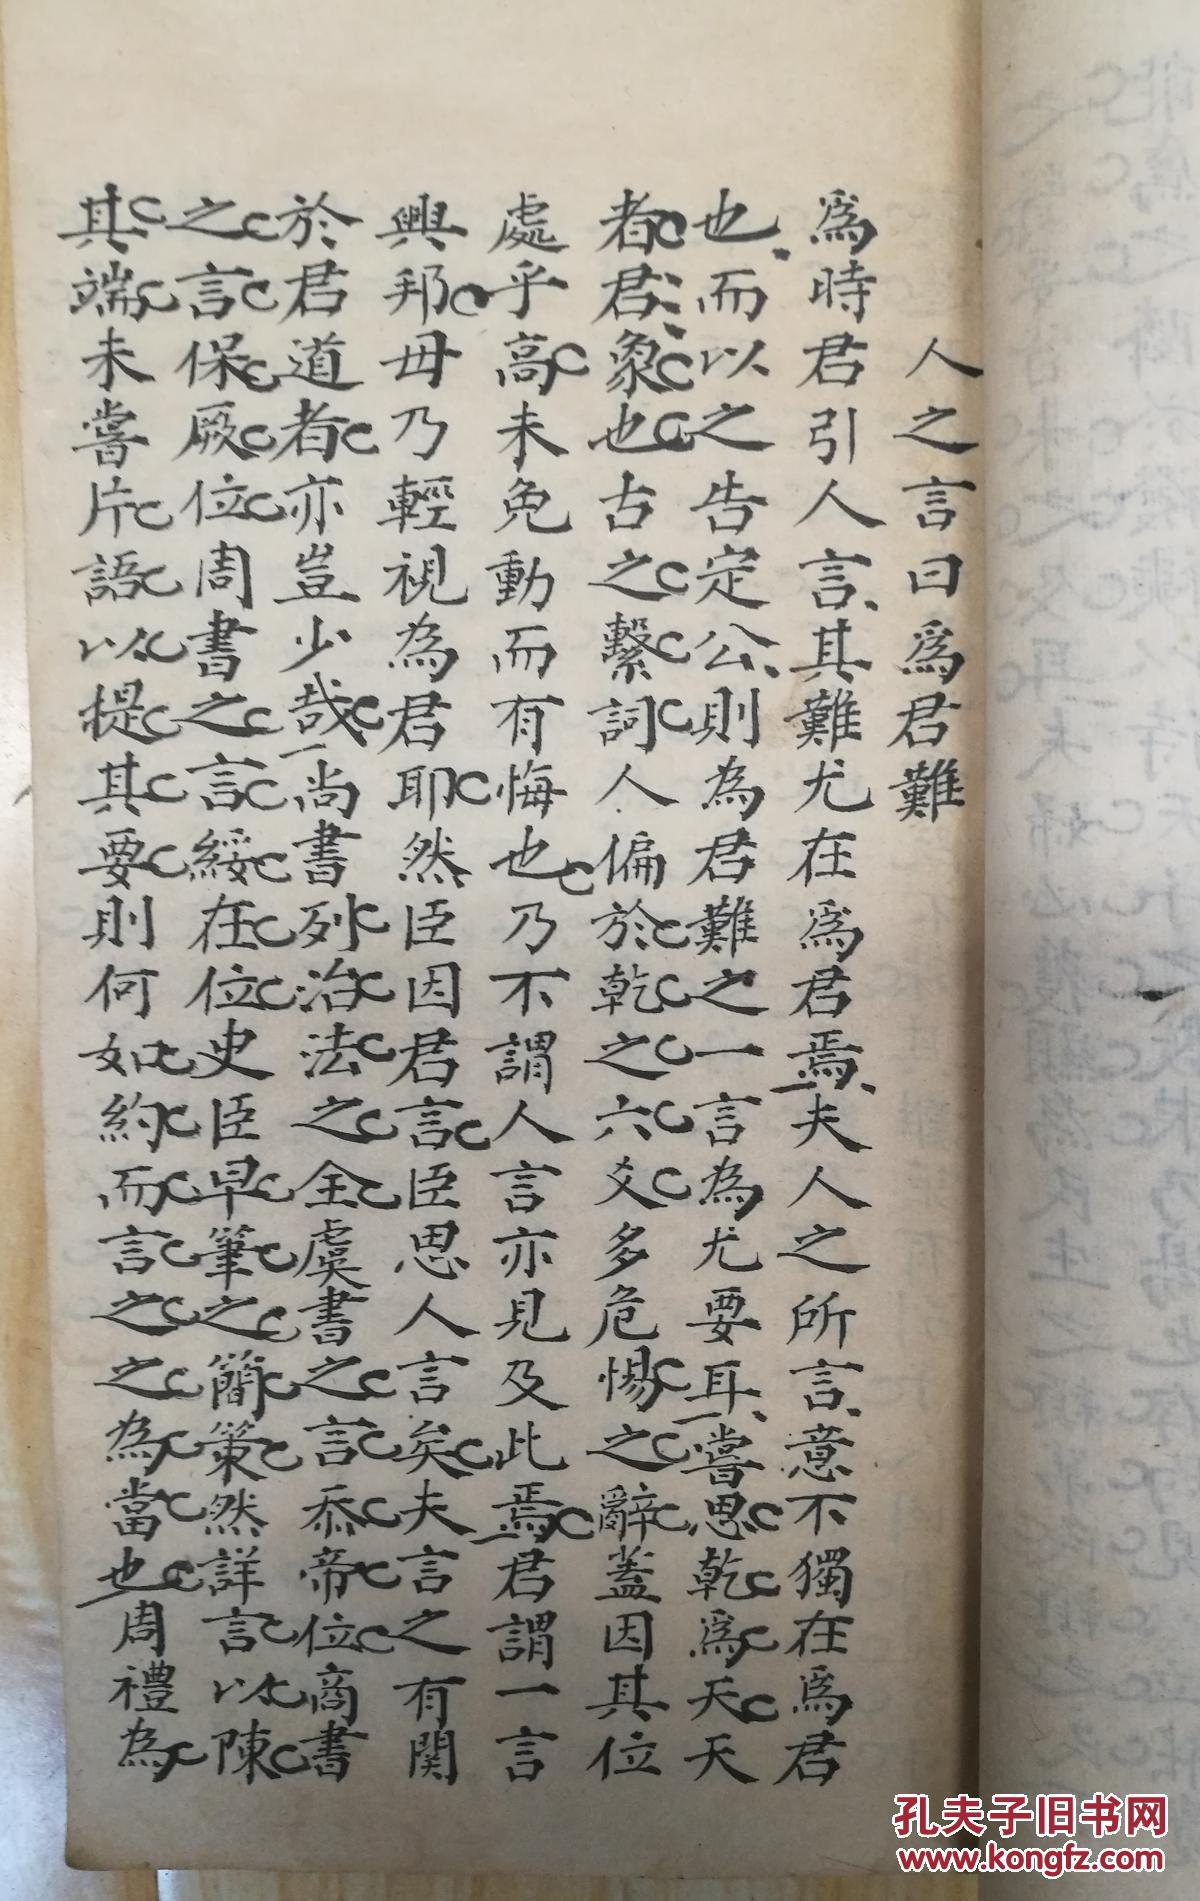 人之言曰爲君難
爲時君引人言其難尤在爲君焉夫人之所言意不獨在爲君
也而以之告定公則為君難之一言為尤要耳嘗思乾爲天天
者君象也古之繫詞人偏於乾之六爻多危惕之辭蓋因其位
處乎高未免動而有悔也乃不謂人言亦見及此焉君謂一言
興邦毋乃輕視為君耶然臣因君言臣思人言矣夫言之有関
於君道者亦豈少哉尚書列治法之全虞書之言忝帝位商書
之言保厥位周書之言綏在位史臣早筆之簡策然詳言以陳
其端未嘗片語以提其要則何如約而言之之為當也周禮為
孔夫子旧书网
www.kongfz.com